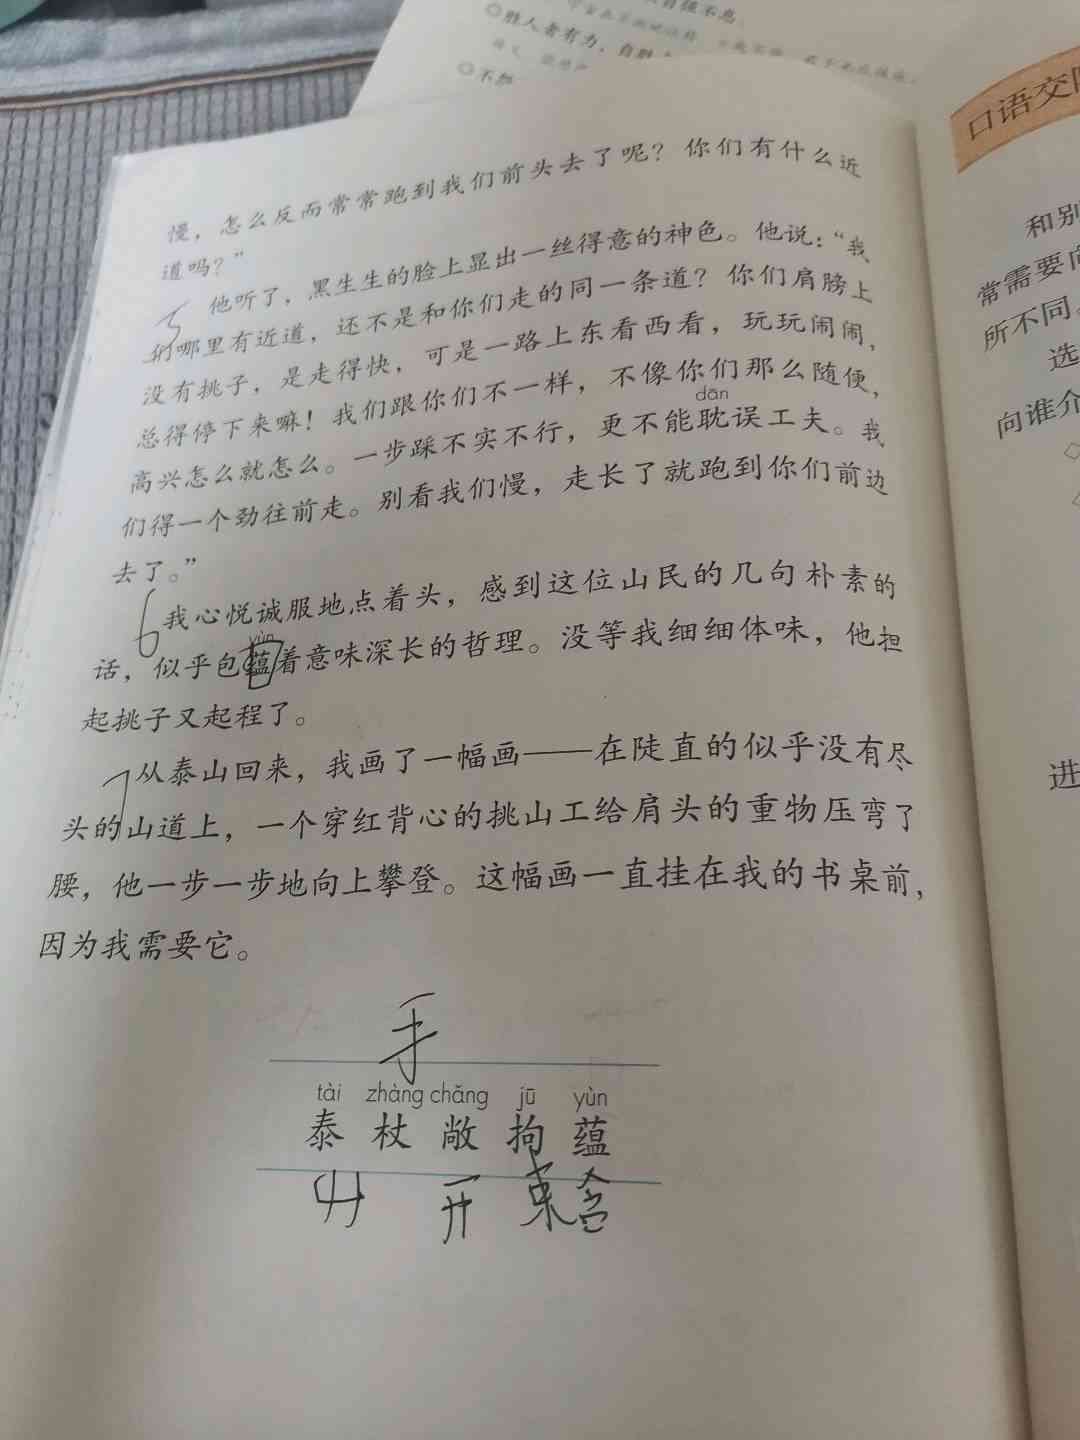 自强不息
◎胜人者有力，自胜
◎不
慢，怎么反而常常跑到我们前头去了呢？你们有什么近
道吗？”
5 他听了，黑生生的脸上显出一丝得意的神色。他说：“我
们哪里有近道，还不是和你们走的同一条道？你们肩膀上
没有挑子，是走得快，可是一路上东看西看，玩玩闹闹，
总得停下来嘛！我们跟你们不一样，不像你们那么随便，
dān
高兴怎么就怎么。一步踩不实不行，更不能耽误工夫。我
们得一个劲往前走。别看我们慢，走长了就跑到你们前边
去了。”
6 我心悦诚服地点着头，感到这位山民的几句朴素的
yùn
话，似乎包蕴着意味深长的哲理。没等我细细体味，他担
起挑子又起程了。
7 从泰山回来，我画了一幅画——在陡直的似乎没有尽
头的山道上，一个穿红背心的挑山工给肩头的重物压弯了
腰，他一步一步地向上攀登。这幅画一直挂在我的书桌前，
因为我需要它。
手
tài zhàng chǎng jū yùn
泰 杖 敞 拘 蕴
山 开 束 含
口语交际
和别
常需要向
所不同。
选
向谁介
进